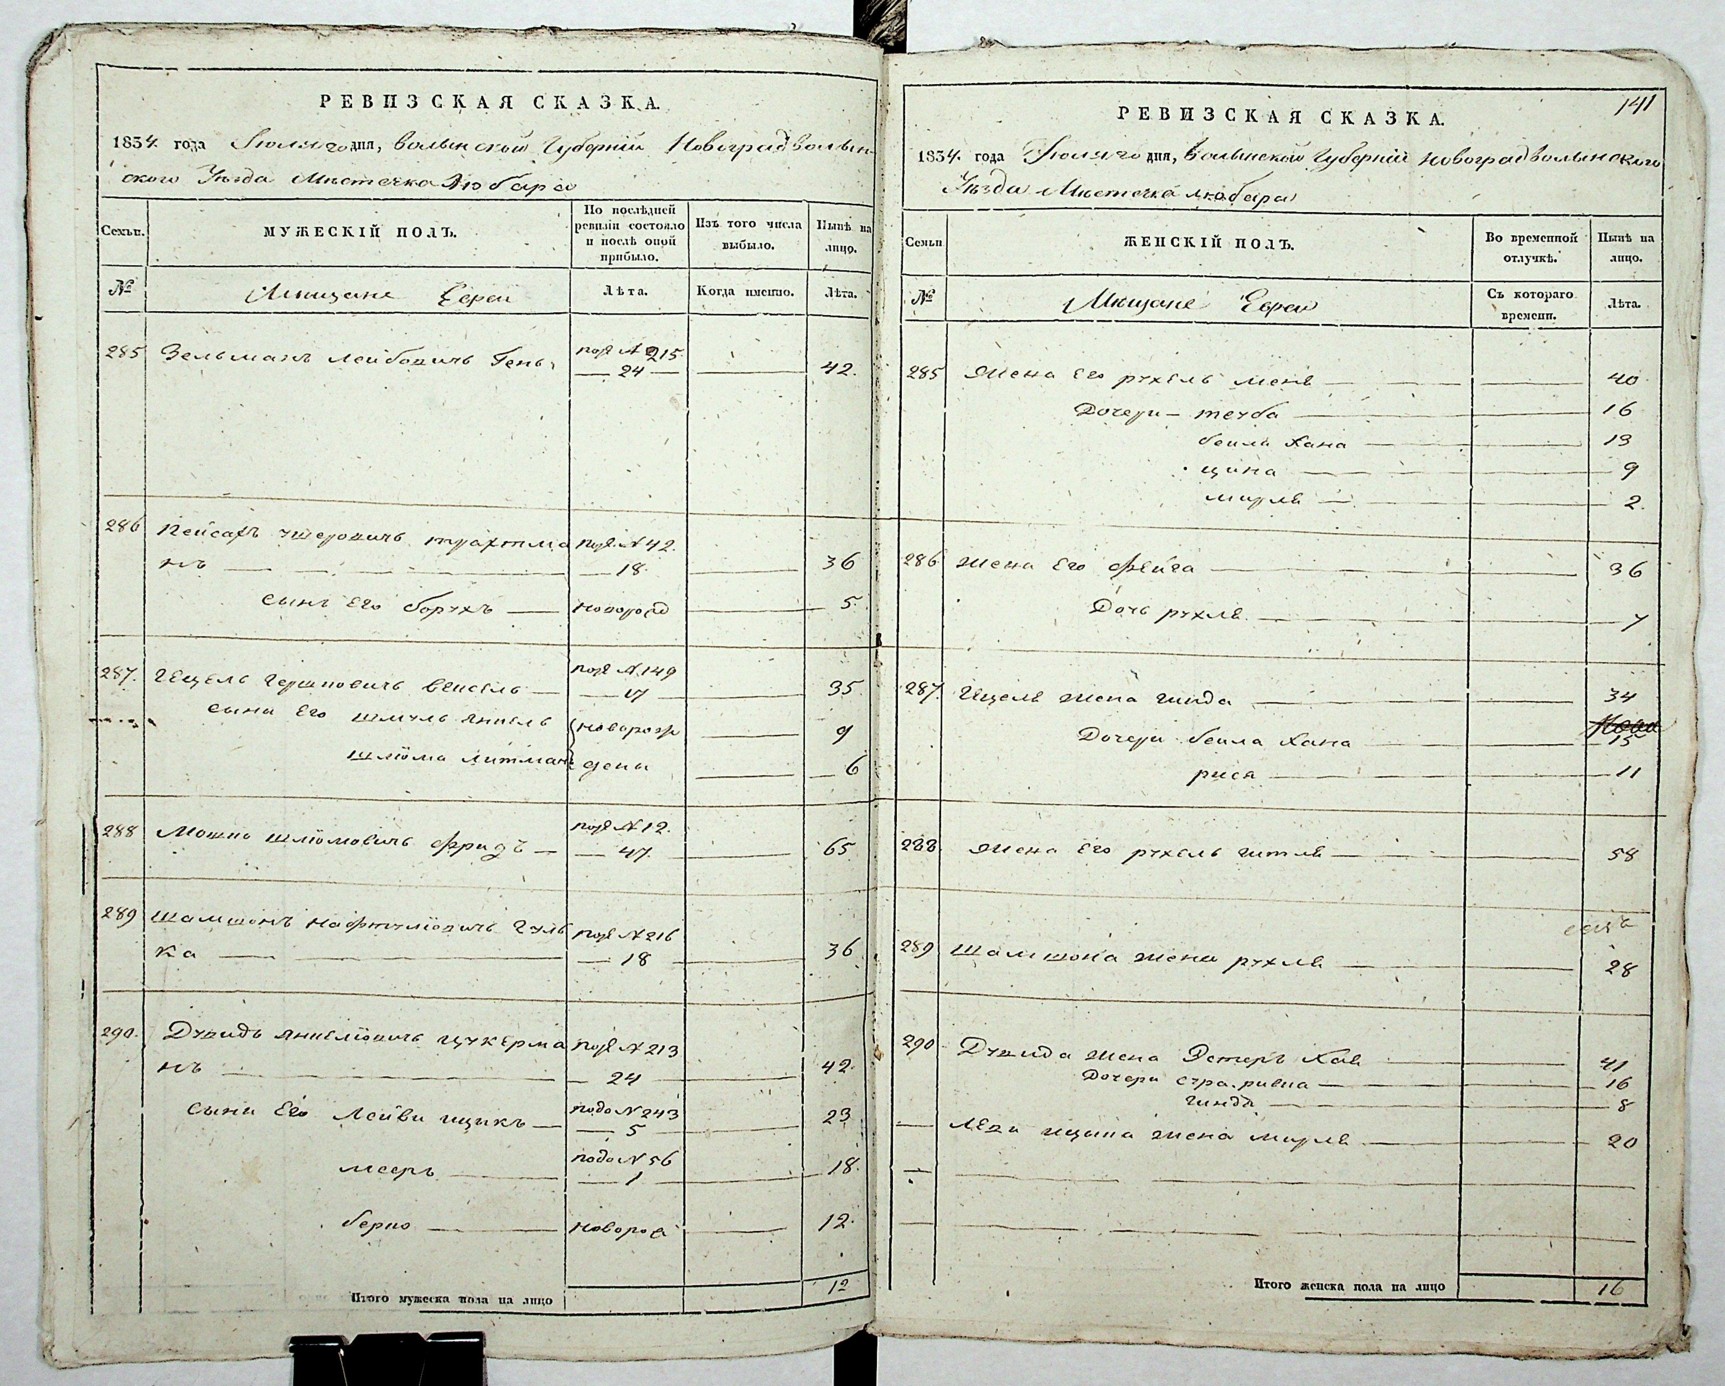 РЕВИЗСКАЯ СКАЗКА.
1834. года Июля дня, Волынской Губерніи Новоградволын-
ского Уѣзда Мѣстечка Любара
Семьи.
МУЖЕСКІЙ ПОЛЪ.
По послѣдней ревизіи состояло и послѣ оной прибыло.
Изъ того числа выбыло.
Нынѣ на лицо.
№
Мѣщане Евреи
Лѣта.
Когда именно.
Лѣта.
285 Зельманъ Лейбовичъ подъ № 215
24 42.
286 Пейсахъ трахтма подъ № 42.
нъ 18. 36
сынъ его борухъ новорож 5.
287. Гецель Гершковичъ подъ № 149
17 35.
сыны его шмуль янкель новорож 9
шлiома литманъ дены 6
288 Мошко шлiомовичъ фридъ подъ № 12.
47. 65.
289 Шамшонъ нафтулiовичъ гуль подъ № 216
ка 18 36
290. Дувидъ янкелiовичъ цукерма подъ № 213
нъ 24 42.
сыны его Лейви ицикъ подъ № 243
5 23
мееръ подъ № 56
1 18.
берко новорож 12.
Итого мужеска пола на лицо 12
141
РЕВИЗСКАЯ СКАЗКА.
1834. года Июля дня, Волынской Губерніи Новоградволынского
Уѣзда Мѣстечка Любара
Семьи
ЖЕНСКІЙ ПОЛЪ.
Во временной отлучкѣ.
Нынѣ на лицо.
№
Мѣщане Евреи
Съ котораго времени.
Лѣта.
285 Жена его рухель 40
Дочери тауба 16
беила Хана 13
цина 9
мирля 2.
286 Жена его фейга 36
Дочь рухля 7
287. Гецеля жена гинда 34
Дочери беила Хана 15
рися 11
288. Жена его рухель гитля 58
289 Шамшона жена рухля 28
290 Дувида жена Эстеръ Хая 41
Дочери стра ривка 16
гинда 8
Лейви ицика жена мирля 20
Итого женска пола на лицо 16